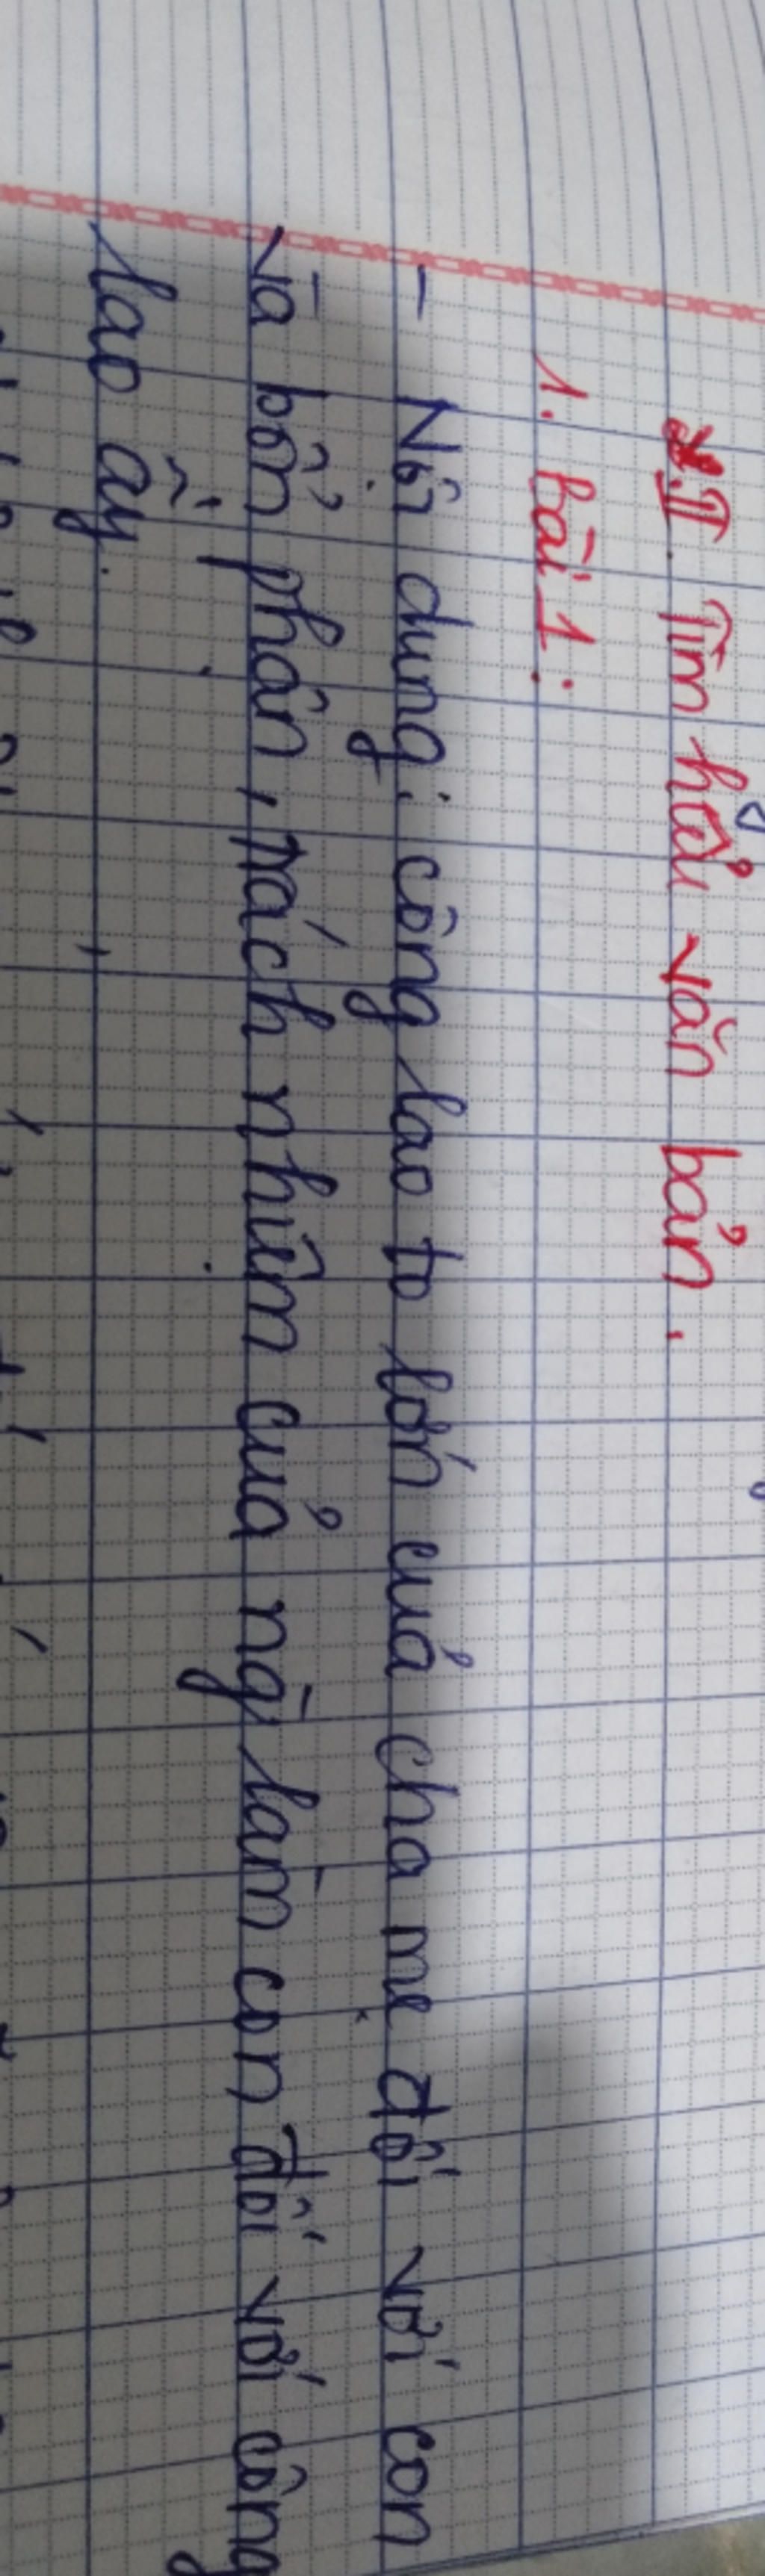 II. Tìm hiểu văn bản.
1. Bài 1:
- Nội dung: công lao to lớn của cha mẹ đối với con
và bổn phận, trách nhiệm của ng` làm con đối với công
lao ấy.